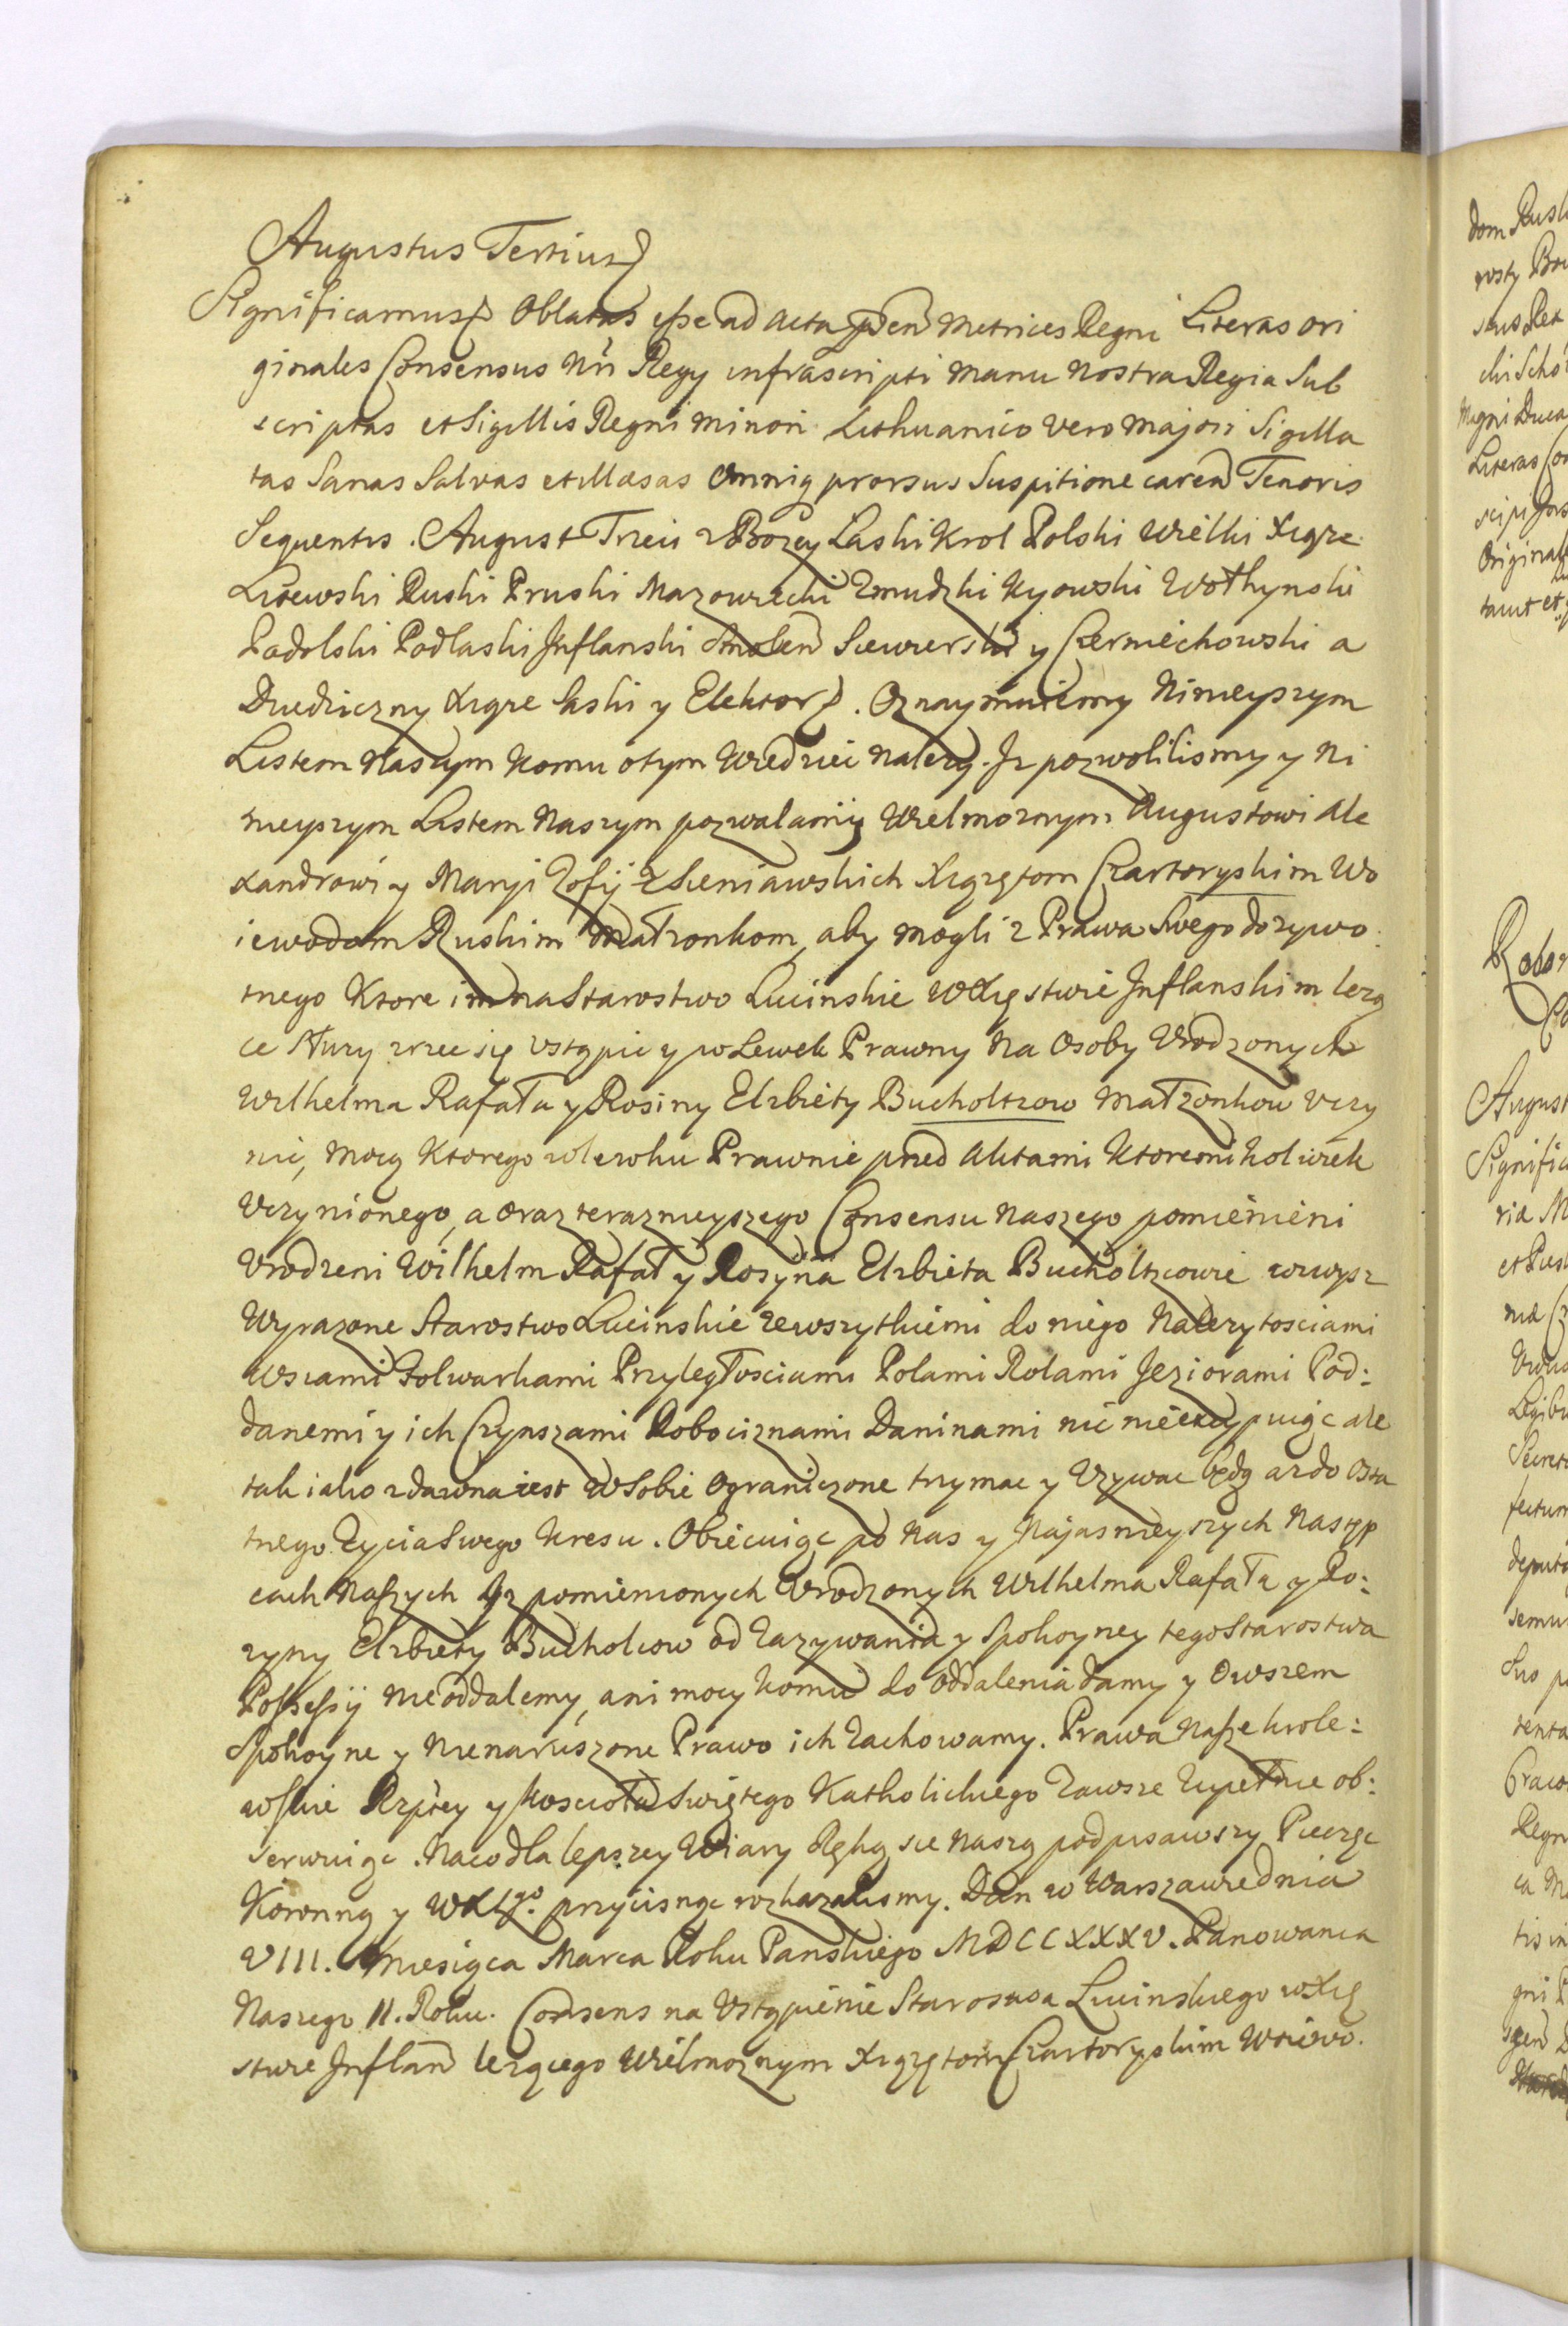 Augustus Tertius
Significamus Oblatas esse ad Acta psen Metrices Regni Literas ori
ginales Consensus Nri Regy infrascripti Manu Nostra Regia Sub
scriptas et Sigillis Regni Minori Lithuanico vero Majori Sigilla
tas Sanas Salvas et illaesas Omnig prorsus Suspitione caren Tenoris
Sequentis. August Trzeci z Bozey Laski Krol Polski Wielki Xąze
Litewski Ruski Pruski Mazowiecki Zmudzki Kyowski Wołhynski
Podolski Podlaski Inflanski Smolen Siewierski y Czerniechowski a
Dziedziczny Xiąze Saski y Elektor. Oznaymuiemy Ninieyszym
Listem Naszym Komu o tym Wiedziec Nalezy. Iz pozwolilismy y Ni
nieyszym Listem Naszym pozwalamy Wielmoznym Augustowi Ale
xandrowi y Maryi Zofij z Sieniawskich Xiązętom Czartoryskim Wo
iewodom Ruskim Małzonkom, aby mogli z Prawa Swego dozywo:
tnego Ktore im na Starostwo Lucinskie w Xięstwie Inflanskim lezą
ce Słuzy zrzec się Ustąpic y wLewek Prawny Na Osoby Urodzonych
Wilhelma Rafała y Rosiny Elzbiety Bucholtzow Małzonkow Uczy
nic, Mocą Ktorego wlewku Prawnie przed Aktami Ktoremi kolwiek
Uczynionego, a oraz teraznieyszego Consensu Naszego pomienieni
Urodzeni Wilhelm Rafał y Rosyna Elzbieta Bucholtzowie wwysz
Wyrazone Starostwo Lucinskie zewszytkiemi do niego Nalezytosciami
Wsiami Folwarkami Przyległosciami Polami Rolami Jeziorami Pod:
danemi y ich Czynszami Robociznami Daninami nic nieexcypuiąc ale
tak iako zdawna iest w Sobie Ograniczone trzymac y Uzywac będą az do Osta
tnego Zycia Swego Kresu. Obiecuiąc po Nas y Najasnieyszych Następ
cach Naszych Iz pomienionych Urodzonych Wilhelma Rafała y Ro:
zyny Elzbiety Bucholcow od Zazywania y Spokoyney tego Starostwa
Possessÿ Nieoddalemy, ani mocy Komu do Oddalenia damy y Owszem
Spokoyne y Nienaruszone Prawo ich Zachowamy. Prawa Nasze krole:
wskie Rzptey y Koscioła Swiętego Katholickiego Zawsze Zupełnie ob:
serwuiąc. Naco dla lepszey Wiary Ręką sie Naszą podpisawszy Pieczęc
Koronną y WXLgo przycisnąc rozkazalismy. Dan w Warszawie Dnia
VIII. Miesiąca Marca Roku Panskiego MDCCXXXV. Panowania
Naszego II. Roku. Consens na Ustąpienie Starostwa Lucinskiego w Xię
stwie Inflan lezącego Wielmoznym Xiązętom Czartoryskim Woiewo.